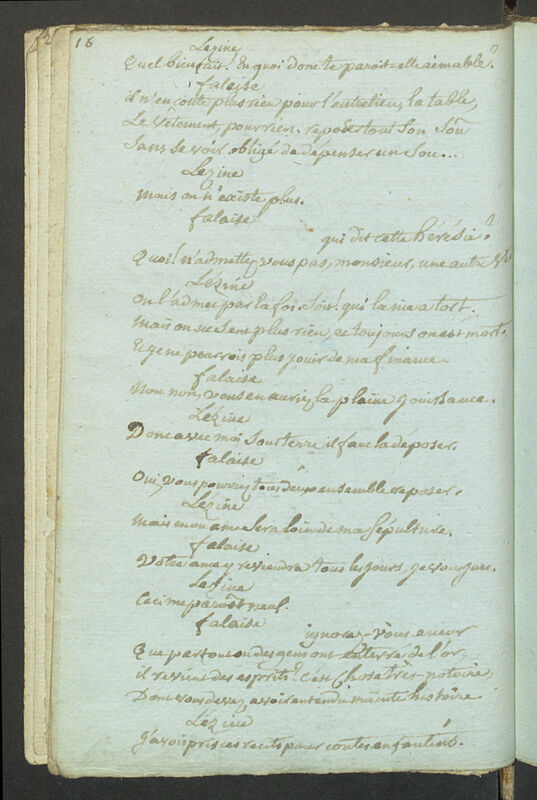 16
Lezine
Quel bienfait! En quoi donc te paroit-elle aimable?
falaise
il n'en coute plus rien pour l'entretien, la table,
Le vêtement, pour rien. repoder tout son soû
Sans se voir obligé de dépenser un Sou...
Lezine
Mais on n'éxiste plus.
falaise
qui dit cette hérésie?
Quoi! n'admettez vous pas, monsieur, une autre vie
Lézine
On l'admet par la foi. Soit! qui la nie a tort.
Mais on ne sent plus rien, et toujours on est mort.
Et je ne pourrois plus jouir de ma finance.
falaise
Non non, vous en auriez la plaine jouissance.
Lézine
Donc avec moi sous terre il faut la déposer.
falaise
Oui, vous pourriez tous deux ensemble reposer.
Lézine
Mais mon ame sera loin de ma sépulture.
falaise
Votre ame y reviendra tous les jours, je vous jure.
Lezine
Ceci me paroît neuf.
falaise
ignorez-vous encor
Que partout ou des gens ont enterré de l'or,
il revient des esprits? c'est chose très-notoire,
Donc vous devez avoir entendu mainte histoire
Lezine
J'avois pris ces recits pour contes enfantins.